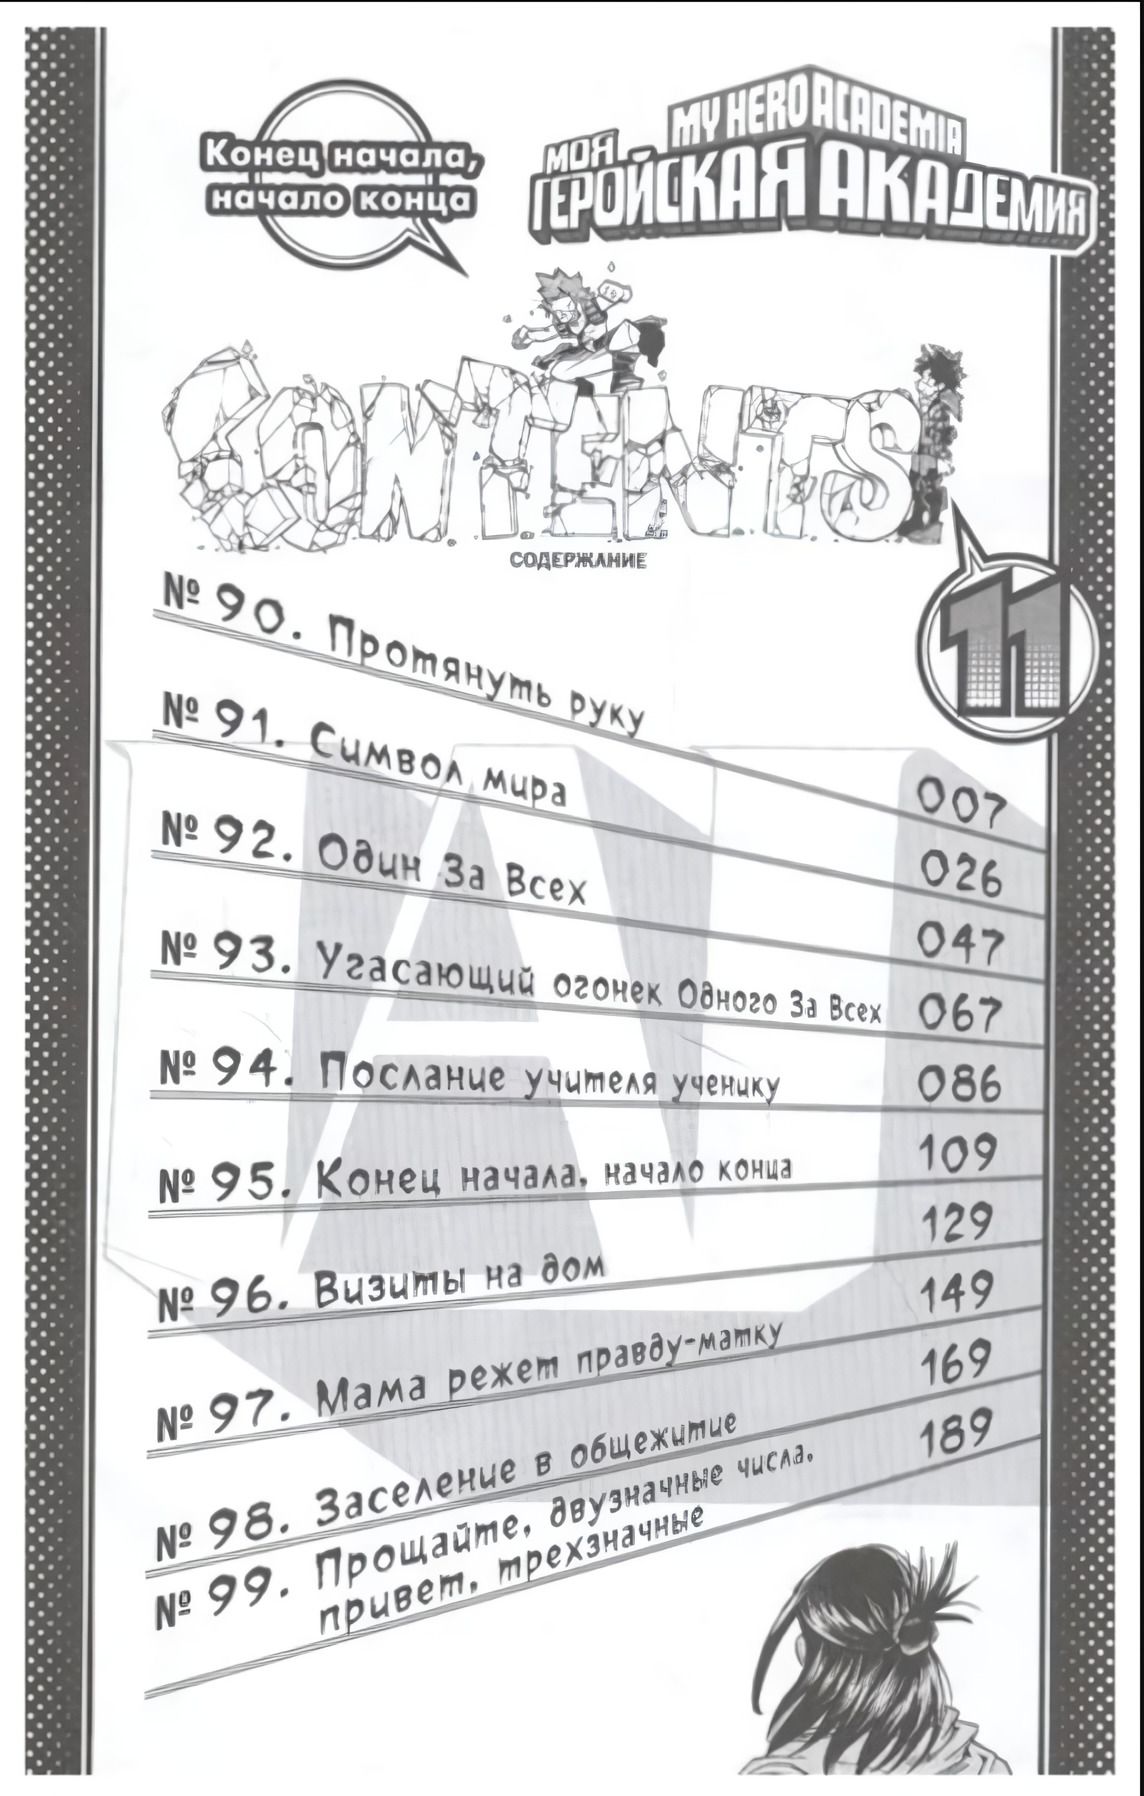 Конец начала,
начало конца
MY HERO ACADEMIA
МОЯ
ГЕРОЙСКАЯ АКАДЕМИЯ
CONTENTS
СОДЕРЖАНИЕ
11
№ 90. Протянуть руку 007
№ 91. Символ мира 026
№ 92. Один За Всех 047
№ 93. Угасающий огонек Одного За Всех 067
№ 94. Послание учителя ученику 086
№ 95. Конец начала, начало конца 109
№ 96. Визиты на дом 129
№ 97. Мама режет правду-матку 149
№ 98. Заселение в общежитие 169
№ 99. Прощайте, двузначные числа, 189
привет, трехзначные